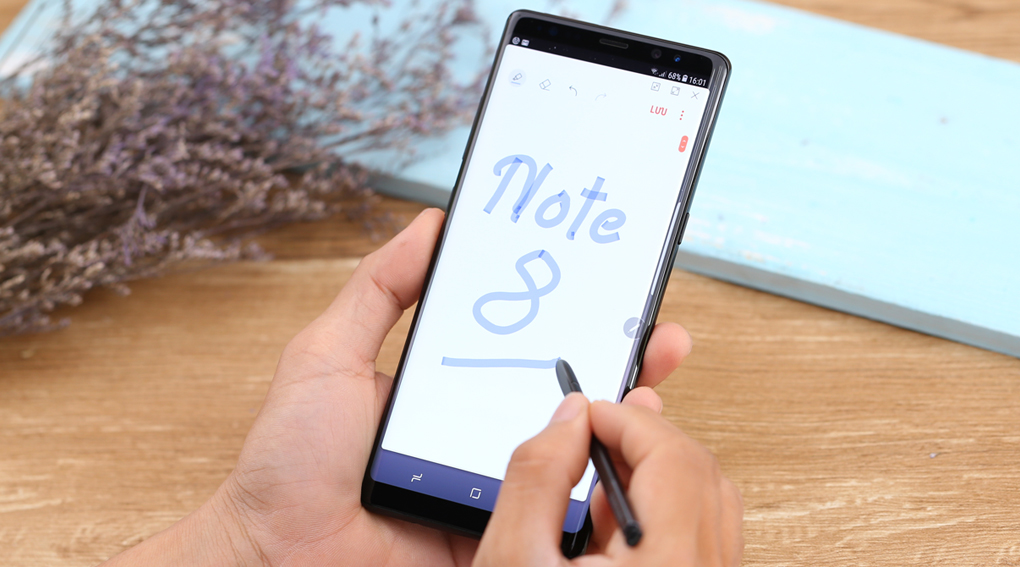 68% 16:01
LƯU
Note
8